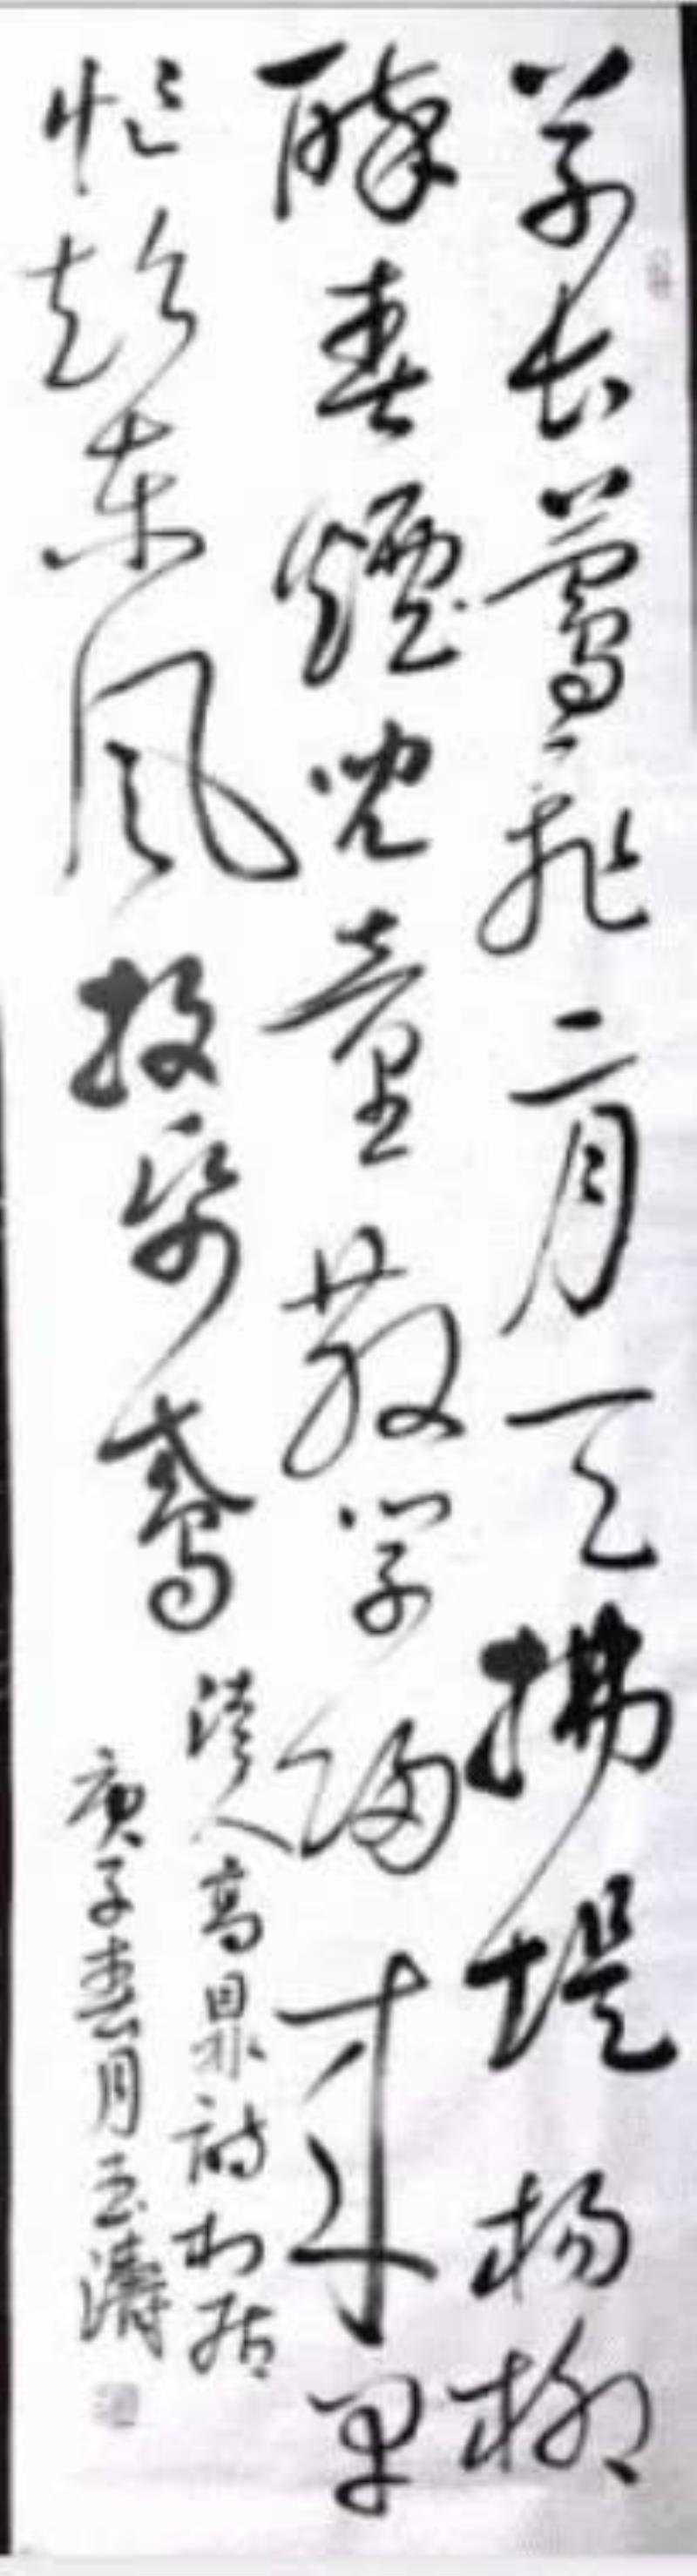 草长莺飞二月天拂堤杨柳
醉春烟儿童散学归来早
忙趁东风放纸鸢
清人高鼎诗村居
庚子春月玉涛